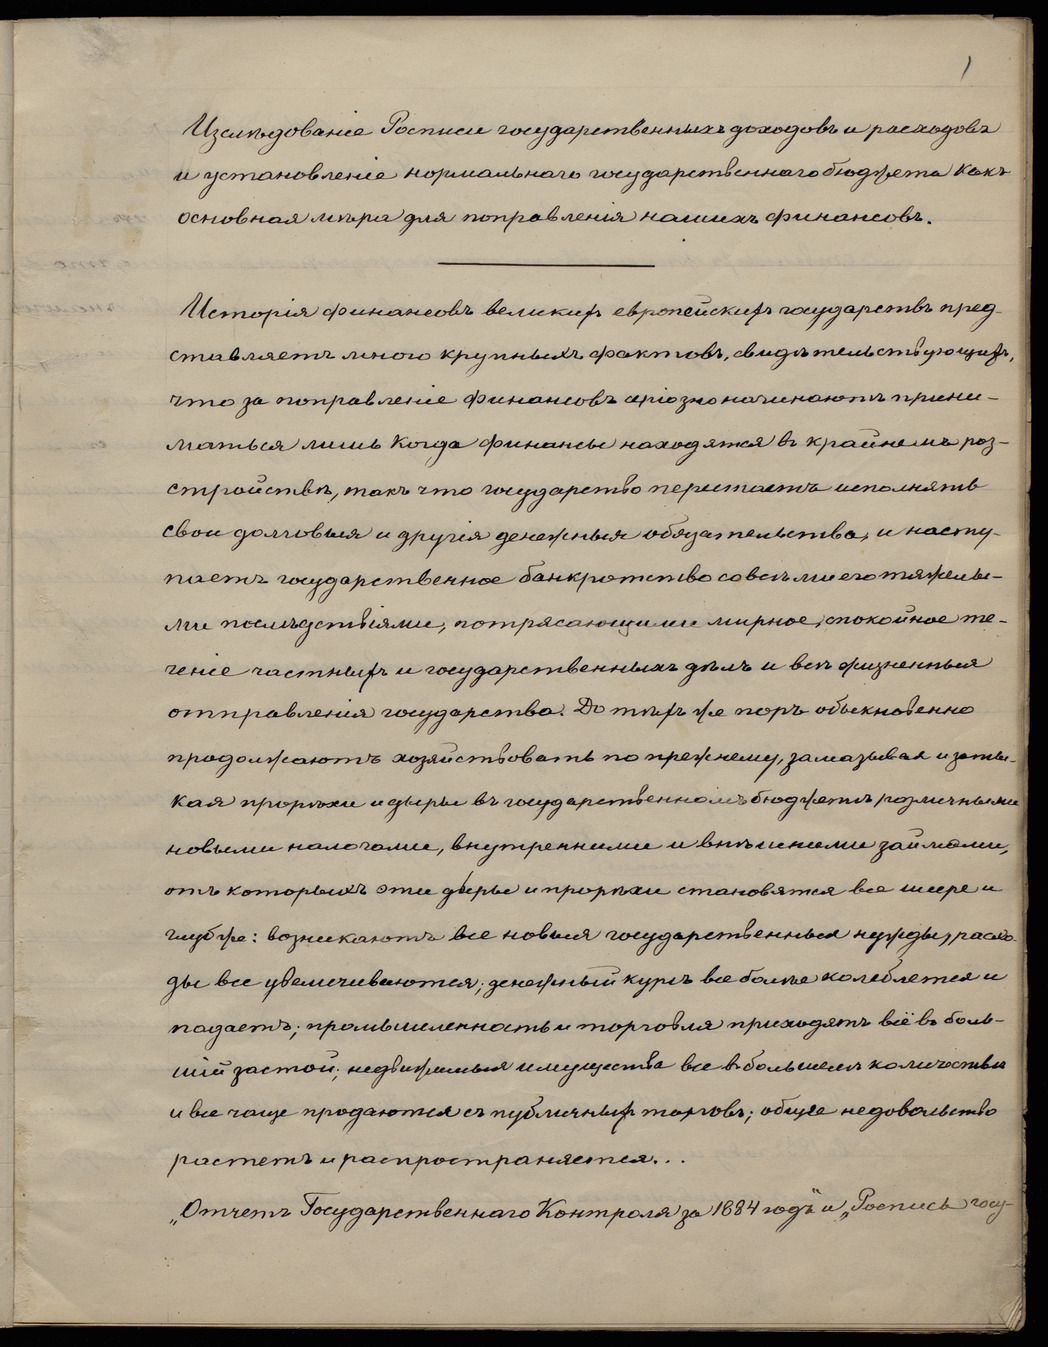 1
Изслѣдованіе Росписи государственныхъ доходовъ и расходовъ
и установленіе нормальнаго государственнаго бюджета какъ
основная мѣра для поправленія нашихъ финансовъ.
Исторія финансовъ великихъ европейскихъ государствъ пред-
ставляетъ много крупныхъ фактовъ, свидѣтельствующихъ,
что за поправленіе финансовъ серіозно начинаютъ прини-
маться лишь когда финансы находятся въ крайнемъ роз-
стройствѣ, такъ что государство перестаетъ исполнять
свои долговыя и другія денежныя обязательства, и насту-
паетъ государственное банкротство со всѣми его тяжелы-
ми послѣдствіями, потрясающими мирное, спокойное те-
ченіе частныхъ и государственныхъ дѣлъ и всѣ жизненныя
отправленія государства. До тѣхъ же поръ обыкновенно
продолжаютъ хозяйствовать по прежнему, замазывая и заты-
кая прорѣхи и дыры въ государственномъ бюджетѣ различными
новыми налогами, внутренними и внѣшними займами,
отъ которыхъ эти дыры и прорѣхи становятся все шире и
глубже: возникаютъ все новыя государственныя нужды, расхо-
ды все увеличиваются; денежный курсъ все болѣе колеблется и
падаетъ; промышленность и торговля приходятъ всё въ боль-
шій застой; недвижимыя имущества все въ большемъ количествѣ
и все чаще продаются съ публичныхъ торговъ; общее недовольство
растетъ и распространяется...
„Отчетъ Государственнаго Контроля за 1884 годъ" и „Роспись госу-